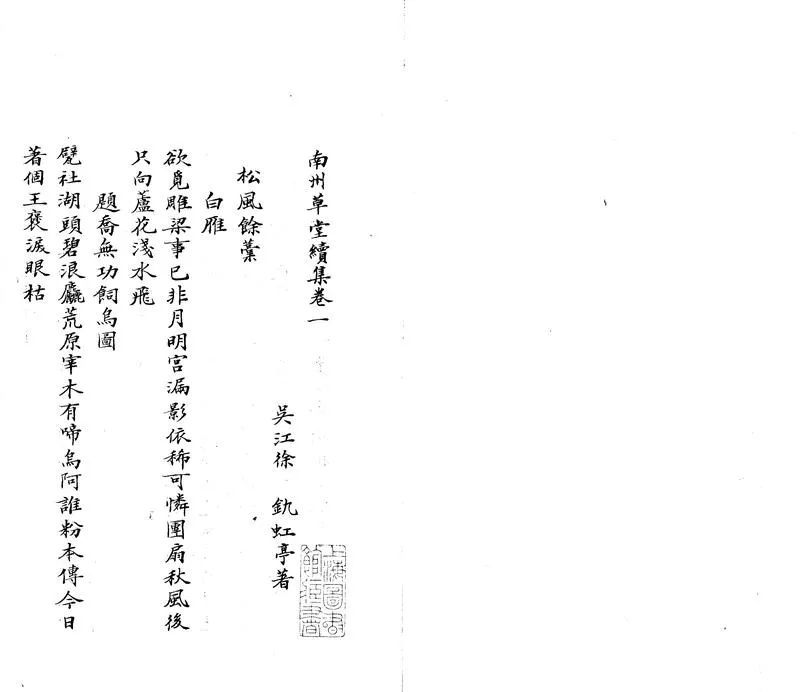 南州草堂續集卷一
吳江徐 釚虹亭著
松風餘藁
白雁
欲覓雎梁事已非月明宮漏影依稀可憐團扇秋風後
只向蘆花淺水飛
題喬無功飼烏圖
甓社湖頭碧浪麤荒原宰木有啼烏阿誰粉本傳今日
著個王裒淚眼枯
上海圖書
館藏書